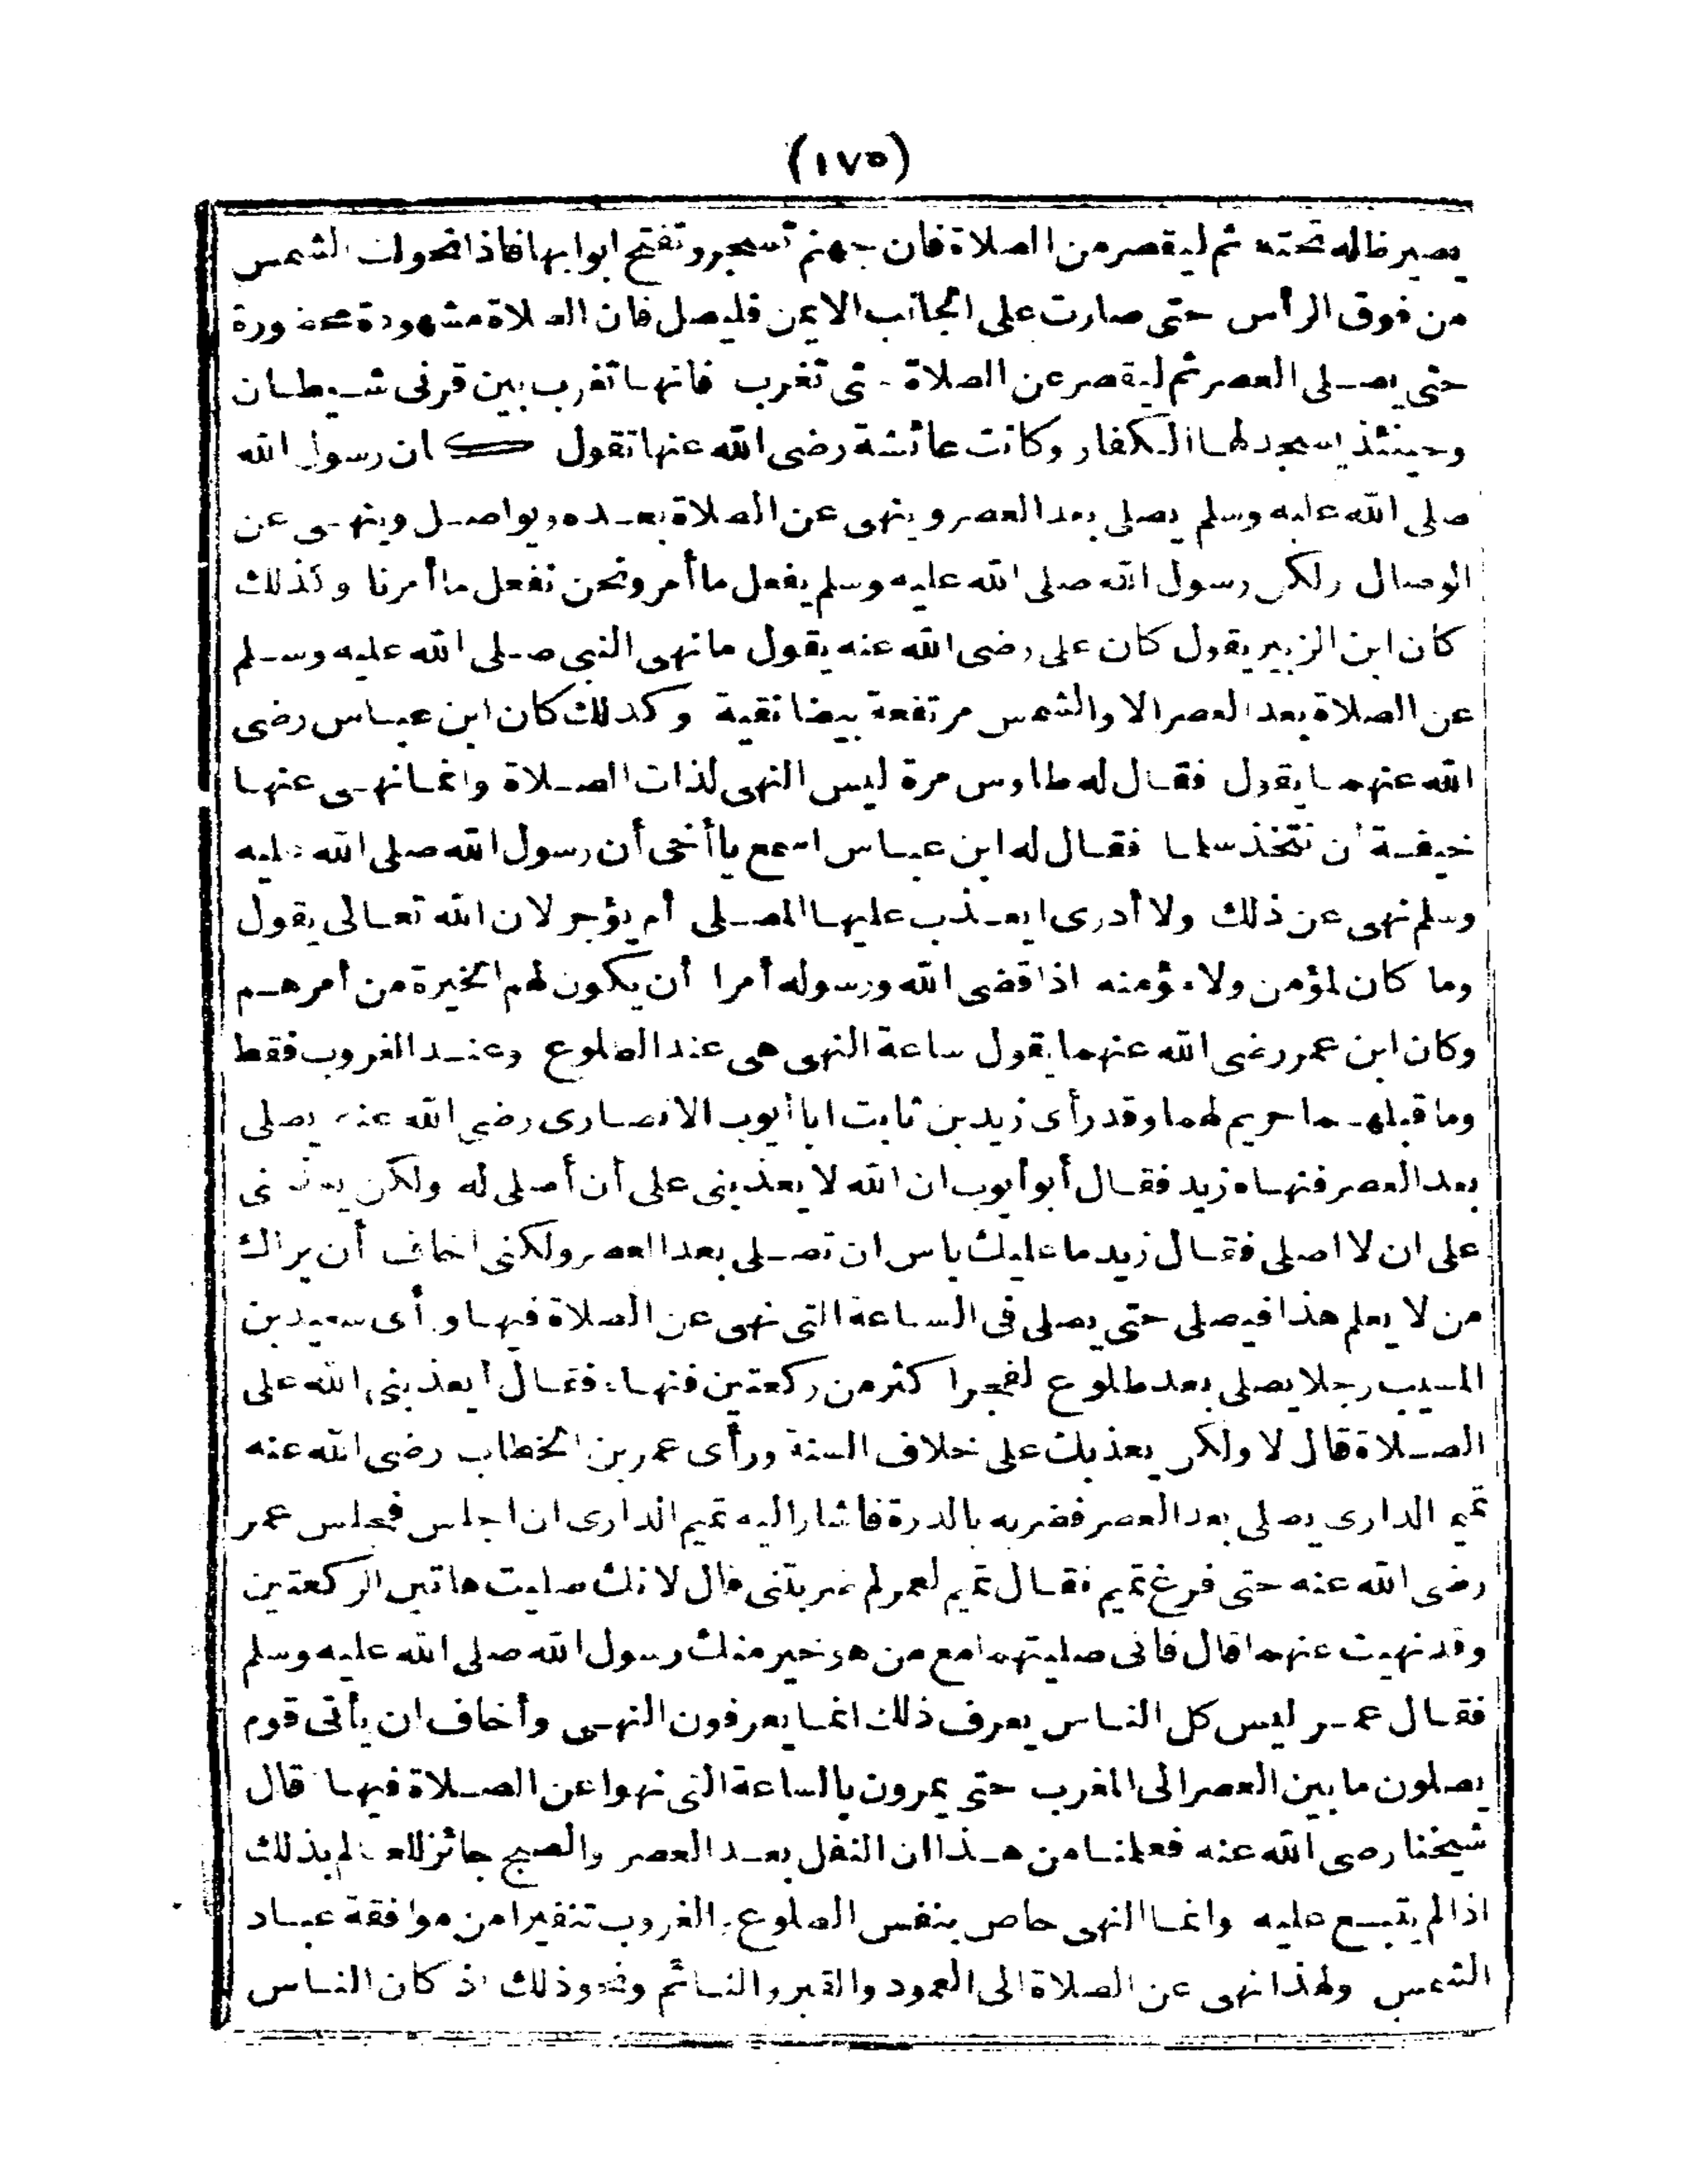 (١٧٥)
يصير ظله تحته ثم ليقصر من الصلاة فان جهنم تسجر وتفتح ابوابها فاذا تحولت الشمس
من فوق الرأس حتى صارت على الجانب الايمن فليصل فان الصلاة مشهودة محضورة
حتى يصلى العصر ثم ليقصر عن الصلاة حتى تغرب فانها تغرب بين قرنى شيطان
وحينئذ يسجد لها الكفار وكانت عائشة رضى الله عنها تقول كان رسول الله
صلى الله عليه وسلم يصلى بعد العصر وينهى عن الصلاة بعده ويواصل وينهى عن
الوصال ولكن رسول الله صلى الله عليه وسلم يفعل ما أمر ونحن نفعل ما أمرنا وكذلك
كان ابن الزبير يقول كان على رضى الله عنه يقول ما نهى النبي صلى الله عليه وسلم
عن الصلاة بعد العصر الا والشمس مرتفعة بيضا نقية وكذلك كان ابن عباس رضى
الله عنهما يقول فقال له طاوس مرة ليس النهى لذات الصلاة وانما نهى عنها
خيفة أن تتخذ سلما فقال له ابن عباس اسمع يا أخى أن رسول الله صلى الله عليه
وسلم نهى عن ذلك ولا أدرى ايعذب عليها المصلى أم يؤجر لان الله تعالى يقول
وما كان لمؤمن ولا مؤمنه اذا قضى الله ورسوله أمرا أن يكون لهم الخيرة من أمرهم
وكان ابن عمر رضى الله عنهما يقول ساعة النهى هى عند الطلوع وعند الغروب فقط
وما قبلهما حريم لهما وقد رأى زيد بن ثابت ابا أيوب الانصارى رضى الله عنه يصلى
بعد العصر فنهاه زيد فقال أبو أيوب ان الله لا يعذبنى على أن أصلى له ولكن يعذبنى
على ان لا اصلى فقال زيد ما عليك باس ان تصلى بعد العصر ولكنى اخاف أن يراك
من لا يعلم هذا فيصلى حتى يصلى فى الساعة التى نهى عن الصلاة فيها ورأى سعيد بن
المسيب رجلا يصلى بعد طلوع الفجر اكثر من ركعتين فنهاه فقال ايعذبنى الله على
الصلاة قال لا ولكن يعذبك على خلاف السنة ورأى عمر بن الخطاب رضى الله عنه
تميم الدارى يصلى بعد العصر فضربه بالدرة فاشار اليه تميم الدارى ان اجلس فجلس عمر
رضى الله عنه حتى فرغ تميم فقال تميم لعمر لم ضربتنى قال لانك صليت هاتين الركعتين
وقد نهيت عنهما قال فانى صليتهما مع من هو خير منك رسول الله صلى الله عليه وسلم
فقال عمر ليس كل الناس يعرف ذلك انما يعرفون النهى وأخاف ان يأتى قوم
يصلون ما بين العصر الى المغرب حتى يمرون بالساعة التى نهوا عن الصلاة فيها قال
شيخنا رضى الله عنه فعلمنا من هذا ان النفل بعد العصر والصبح جائز للعالم بذلك
اذا لم يتبع عليه وانما النهى خاص بنفس الطلوع والغروب تنفيرا من موافقة عباد
الشمس ولهذا نهى عن الصلاة الى العمود والقبر والنائم ونحو ذلك اذ كان الناس